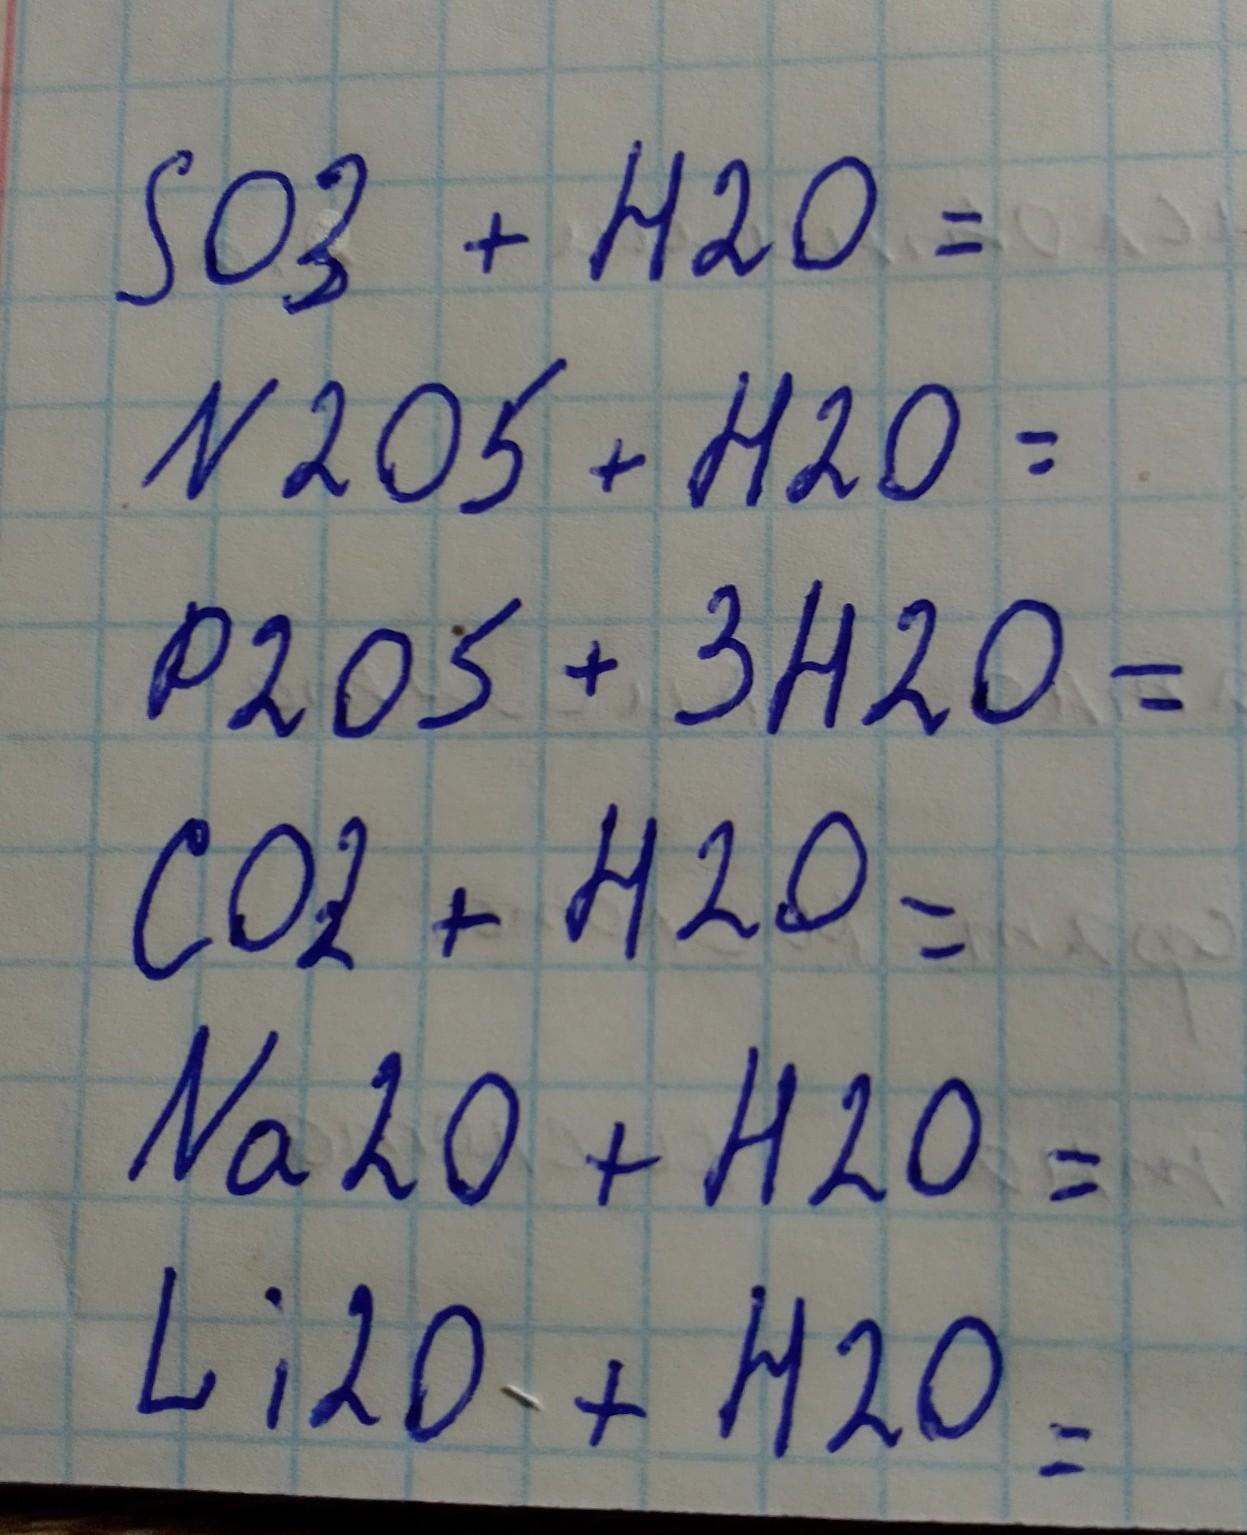 SO3 + H2O =
N2O5 + H2O =
P2O5 + 3H2O =
CO2 + H2O =
Na2O + H2O =
Li2O + H2O =